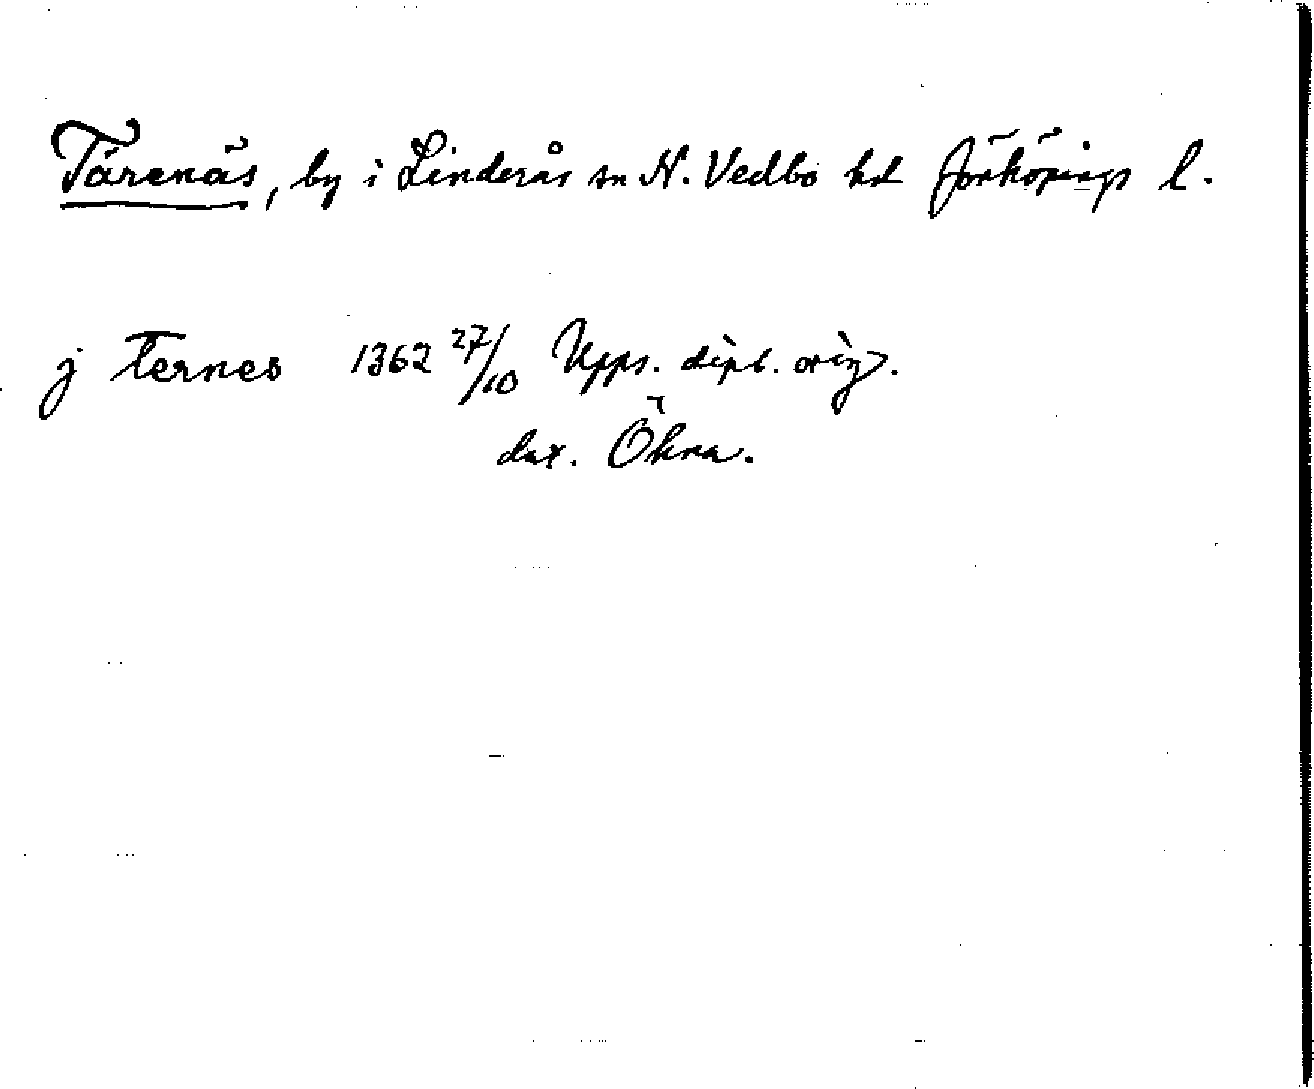 Tärenäs, by i Linderås sn N. Vedbo hd Jönköpings l.
j ternes 1362 27/10 Upps. dipl. orig.
dat. Ökna.